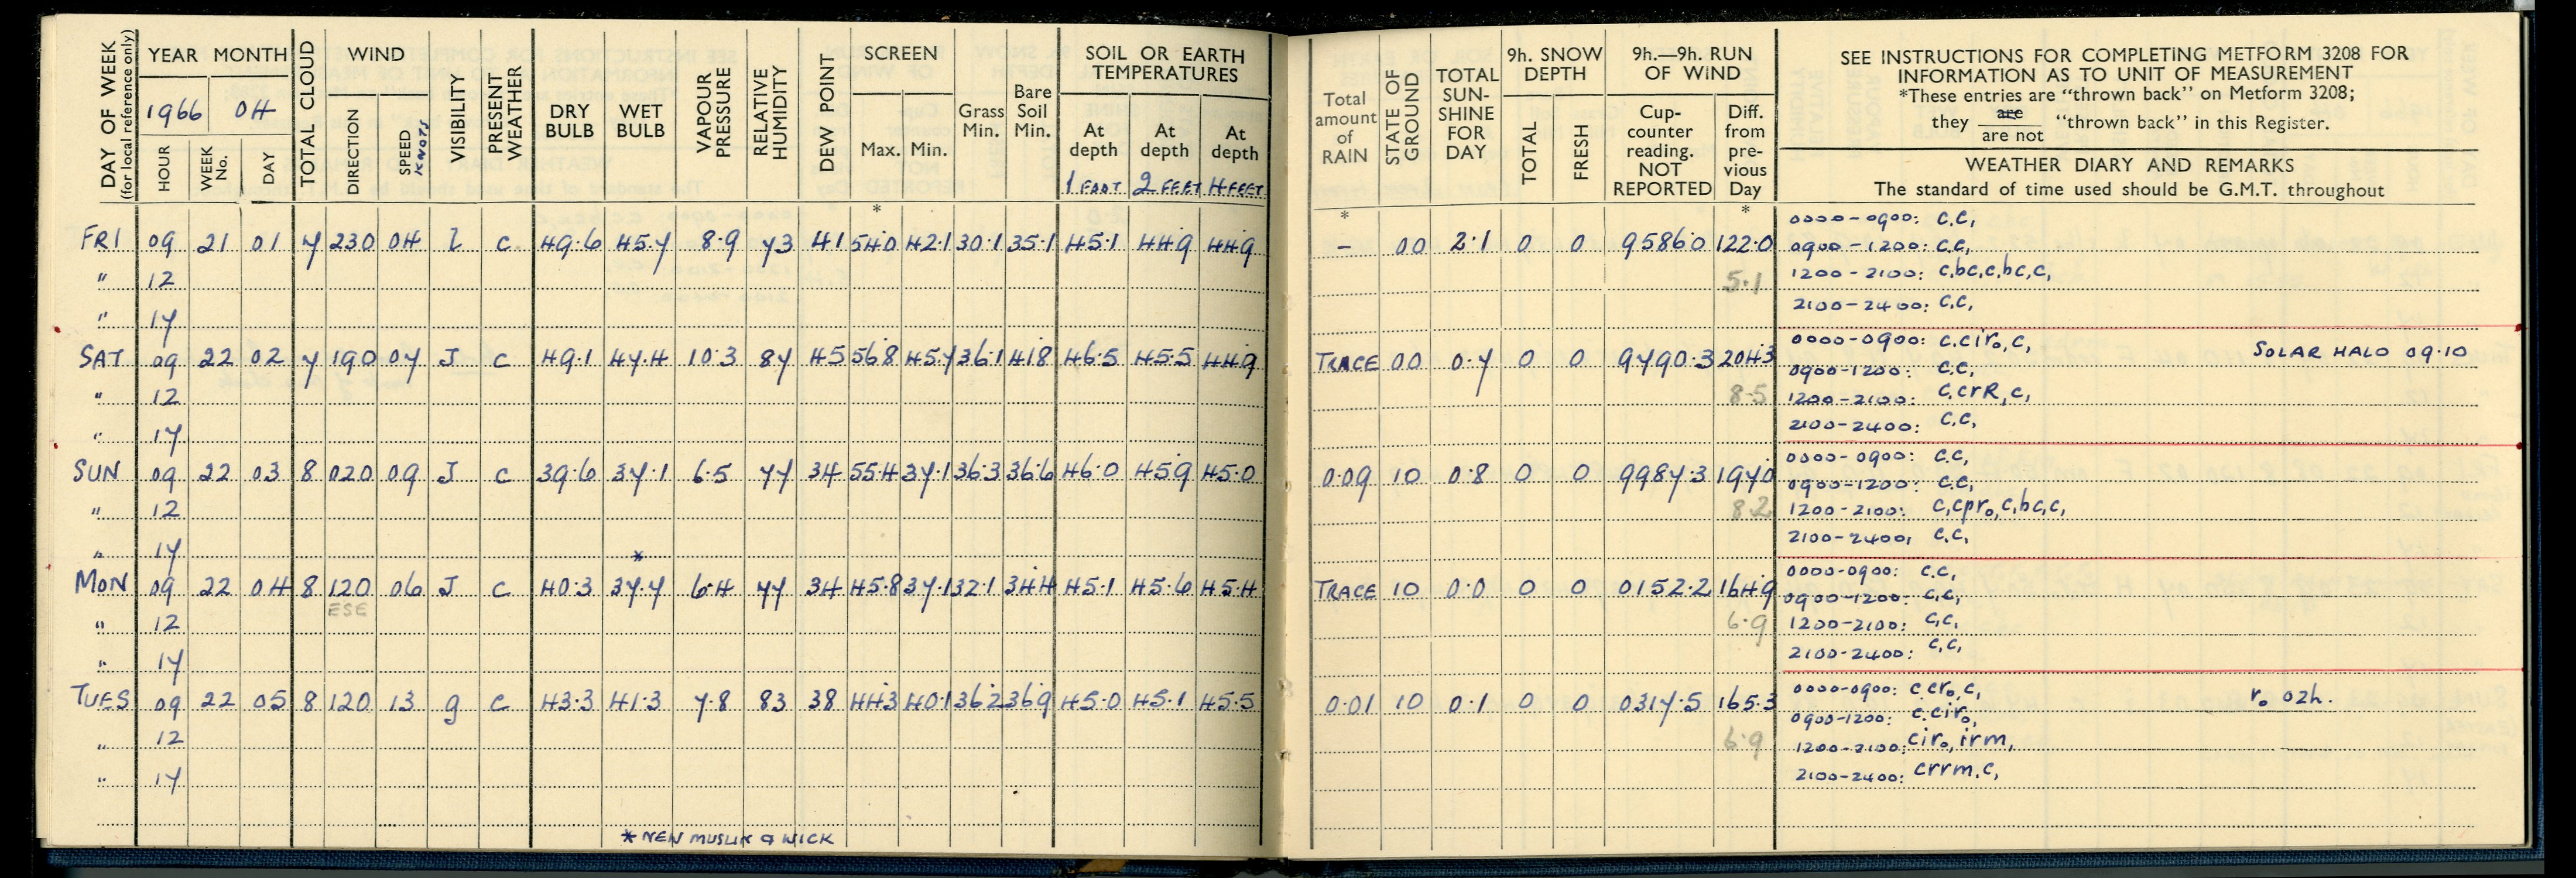 DAY OF WEEK
(for local reference only)
YEAR MONTH
1966 04
HOUR WEEK No. DAY
TOTAL CLOUD
WIND
DIRECTION SPEED KNOTS
VISIBILITY
PRESENT WEATHER
DRY BULB
WET BULB
VAPOUR PRESSURE
RELATIVE HUMIDITY
DEW POINT
SCREEN
Max. Min.
Grass Min.
Bare Soil Min.
SOIL OR EARTH TEMPERATURES
At depth 1 FOOT
At depth 2 FEET
At depth 4 FEET
Total amount of RAIN
STATE OF GROUND
TOTAL SUN-SHINE FOR DAY
9h. SNOW DEPTH
TOTAL FRESH
9h.—9h. RUN OF WIND
Cup-counter reading. NOT REPORTED
Diff. from pre-vious Day
SEE INSTRUCTIONS FOR COMPLETING METFORM 3208 FOR
INFORMATION AS TO UNIT OF MEASUREMENT
*These entries are “thrown back” on Metform 3208;
they are / are not “thrown back” in this Register.
WEATHER DIARY AND REMARKS
The standard of time used should be G.M.T. throughout
* * *
FRI 09 21 01 7 230 04 l c 49.6 45.7 8.9 73 41 54.0 42.1 30.1 35.1 45.1 44.9 44.9 – 00 2.1 0 0 9586.0 122.0
0000-0900: c.c,
0900-1200: c.c,
" 12 5.1 1200-2100: c,bc,c,bc,c,
" 17 2100-2400: c.c,
SAT 09 22 02 7 190 07 J c 49.1 47.4 10.3 87 45 56.8 45.7 36.1 41.8 46.5 45.5 44.9 TRACE 00 0.7 0 0 9790.3 204.3
0000-0900: c.cir₀,c, SOLAR HALO 09.10
0900-1200: c.c,
" 12 8.5 1200-2100: c,crR,c,
" 17 2100-2400: c.c,
SUN 09 22 03 8 020 09 J c 39.6 37.1 6.5 77 34 55.4 37.1 36.3 36.6 46.0 45.9 45.0 0.09 10 0.8 0 0 9987.3 197.0
0000-0900: c.c,
0900-1200: c.c,
" 12 8.2 1200-2100: c,cpr₀,c,bc,c,
" 17 2100-2400, c.c,
*
MON 09 22 04 8 120 06 J c 40.3 37.7 6.4 77 34 45.8 37.1 32.1 34.4 45.1 45.6 45.4 TRACE 10 0.0 0 0 0152.2 164.9
ESE
0000-0900: c.c,
0900-1200: c.c,
" 12 6.9 1200-2100: c,c,
" 17 2100-2400: c,c,
TUES 09 22 05 8 120 13 g c 43.3 41.3 7.8 83 38 44.3 40.1 36.2 36.9 45.0 45.1 45.5 0.01 10 0.1 0 0 0317.5 165.3
0000-0900: c.cr₀,c, r₀ 02h.
0900-1200: c.cir₀,
" 12 6.9 1200-2100: cir₀,irm,
" 17 2100-2400: crrm,c,
* NEW MUSLIN & WICK